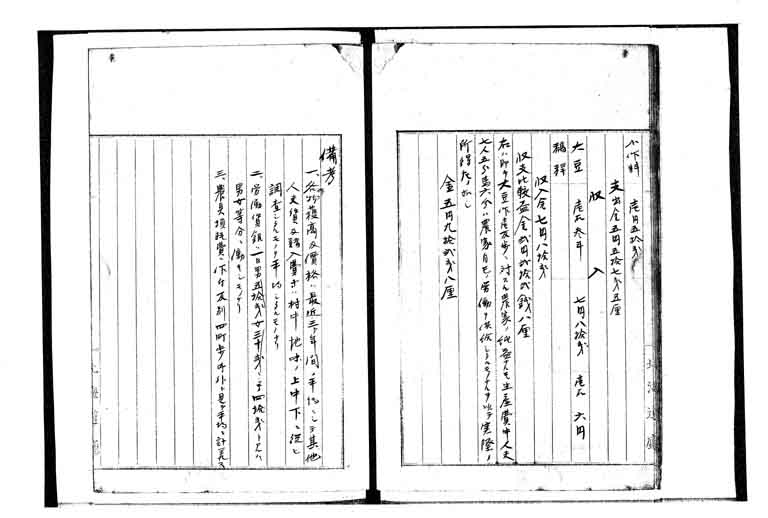 小作料 壱円五拾銭
支出金五円五拾七銭五厘
収入
大豆 壱石参斗 七円八拾銭 壱石 六円
稿稈
収入金七円八拾銭
収支比較益金弐円弐拾弐銭八厘
右ハ即チ大豆作壱反歩ニ対スル農家ノ純益ナルモ生産費中人夫
七人五分 ハ農家自ラ労働ヲ供給シ得ルモノナルヲ以テ実際ノ
所得左ノ如シ
金五円九拾弐銭八厘
備考
一、 収穫高及價格ハ最近三ヶ年間ノ平均ニシテ其他
人夫賃及購入費等ハ村中地味ノ上中下ニ従ヒ
調査シタルモノヲ平均シタルモノナリ
二、労働賃銀ハ一日男五拾銭女三十銭 四拾銭
男女等分ニ働キシモノナリ
三、農具損耗費ハ作付反別四町歩 平均ニ計算ス
北海道廳
北海道廳